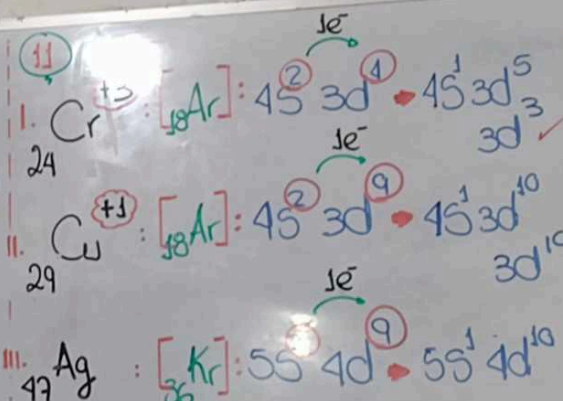 11
1e⁻
I. ₂₄Cr⁺³ : [₁₈Ar]: 4S² 3d⁴ • 4S¹ 3d⁵
3d³ ✓
1e⁻
II. ₂₉Cu⁺¹ : [₁₈Ar]: 4S² 3d⁹ • 4S¹ 3d¹⁰
3d¹⁰
1e⁻
III. ₄₇Ag : [₃₆Kr]: 5S 4d⁹ • 5S¹ 4d¹⁰